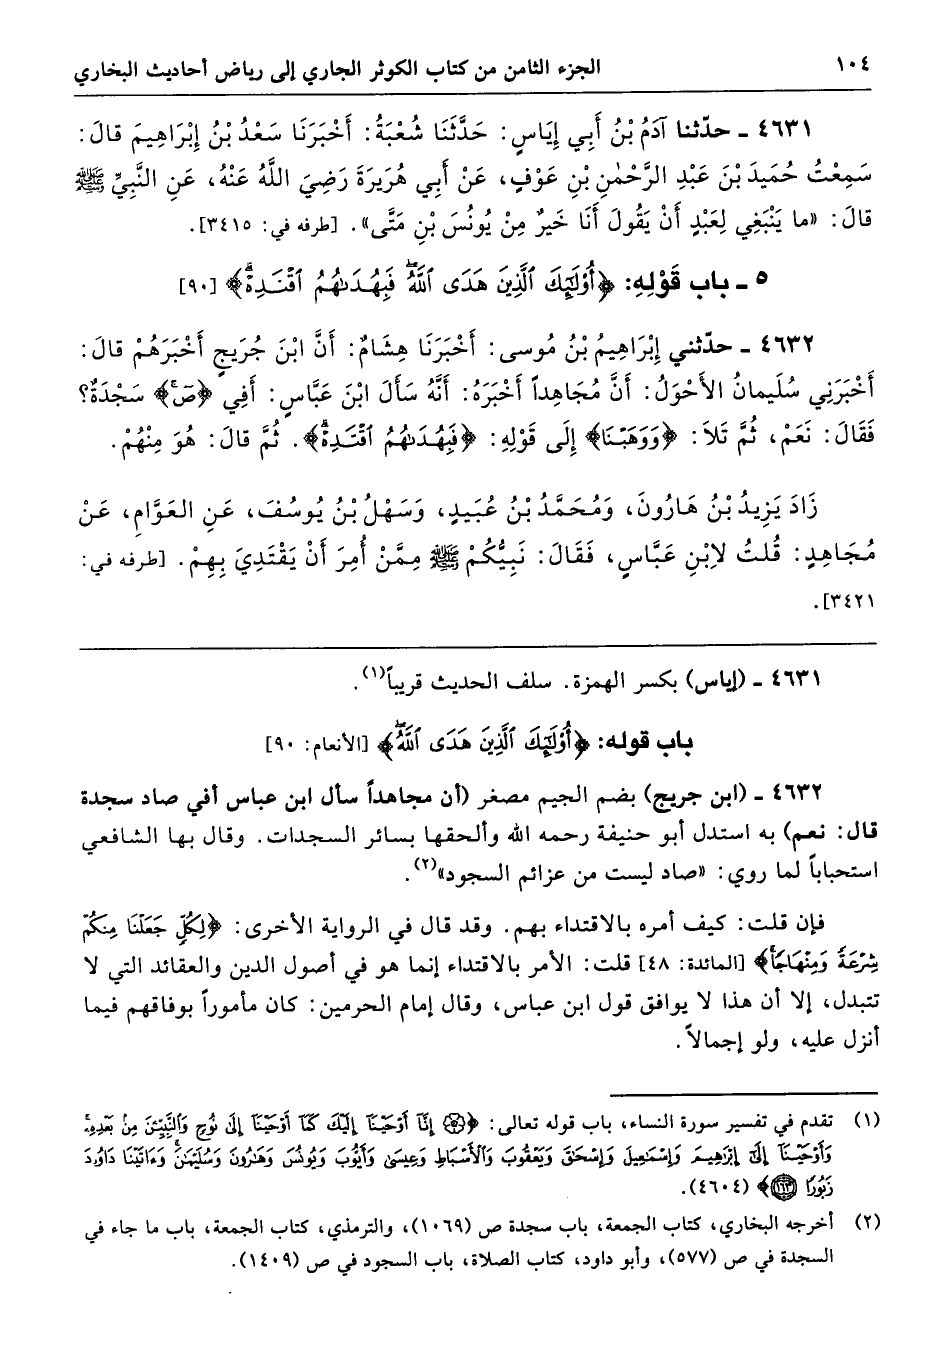 ١٠٤ الجزء الثامن من كتاب الكوثر الجاري إلى رياض أحاديث البخاري
٤٦٣١ ـ حدّثنا آدَمُ بْنُ أَبِي إِيَاسٍ: حَدَّثَنَا شُعْبَةُ: أَخْبَرَنَا سَعْدُ بْنُ إِبْرَاهِيمَ قالَ:
سَمِعْتُ حُمَيدَ بْنَ عَبْدِ الرَّحْمٰنِ بْنِ عَوْفٍ، عَنْ أَبِي هُرَيرَةَ رَضِيَ اللَّهُ عَنْهُ، عَنِ النَّبِيِّ ﷺ
قالَ: «ما يَنْبَغِي لِعَبْدٍ أَنْ يَقُولَ أَنَا خَيرٌ مِنْ يُونُسَ بْنِ مَتَّى». [طرفه في: ٣٤١٥].
٥ ـ باب قَوْلِهِ: ﴿أُوْلَٰٓئِكَ ٱلَّذِينَ هَدَى ٱللَّهُۖ فَبِهُدَىٰهُمُ ٱقْتَدِهْۗ﴾ [٩٠]
٤٦٣٢ ـ حدّثني إِبْرَاهِيمُ بْنُ مُوسى: أَخْبَرَنَا هِشَامٌ: أَنَّ ابْنَ جُرَيجٍ أَخْبَرَهُمْ قالَ:
أَخْبَرَنِي سُلَيمانُ الأَحْوَلُ: أَنَّ مُجَاهِداً أَخْبَرَهُ: أَنَّهُ سَأَلَ ابْنَ عَبَّاسٍ: أَفِي ﴿صٓۚ﴾ سَجْدَةٌ؟
فَقَالَ: نَعَمْ، ثُمَّ تَلاَ: ﴿وَوَهَبْنَا﴾ إِلَى قَوْلِهِ: ﴿فَبِهُدَىٰهُمُ ٱقْتَدِهْۗ﴾. ثُمَّ قالَ: هُوَ مِنْهُمْ.
زَادَ يَزِيدُ بْنُ هَارُونَ، وَمُحَمَّدُ بْنُ عُبَيدٍ، وَسَهْلُ بْنُ يُوسُفَ، عَنِ العَوَّامِ، عَنْ
مُجَاهِدٍ: قُلتُ لاِبْنِ عَبَّاسٍ، فَقَالَ: نَبِيُّكُمْ ﷺ مِمَّنْ أُمِرَ أَنْ يَقْتَدِيَ بِهِمْ. [طرفه في:
٣٤٢١].
٤٦٣١ ـ (إياس) بكسر الهمزة. سلف الحديث قريباً(١).
باب قوله: ﴿أُوْلَٰٓئِكَ ٱلَّذِينَ هَدَى ٱللَّهُۖ﴾ [الأنعام: ٩٠]
٤٦٣٢ ـ (ابن جريج) بضم الجيم مصغر (أن مجاهداً سأل ابن عباس أفي صاد سجدة
قال: نعم) به استدل أبو حنيفة رحمه الله وألحقها بسائر السجدات. وقال بها الشافعي
استحباباً لما روي: «صاد ليست من عزائم السجود»(٢).
فإن قلت: كيف أمره بالاقتداء بهم. وقد قال في الرواية الأخرى: ﴿لِكُلٍّ جَعَلْنَا مِنكُمْ
شِرْعَةً وَمِنْهَاجًاۚ﴾ [المائدة: ٤٨] قلت: الأمر بالاقتداء إنما هو في أصول الدين والعقائد التي لا
تتبدل، إلا أن هذا لا يوافق قول ابن عباس، وقال إمام الحرمين: كان مأموراً بوفاقهم فيما
أنزل عليه، ولو إجمالاً.
(١) تقدم في تفسير سورة النساء، باب قوله تعالى: ﴿۞ إِنَّآ أَوْحَيْنَآ إِلَيْكَ كَمَآ أَوْحَيْنَآ إِلَىٰ نُوحٍ وَٱلنَّبِيِّـۧنَ مِنۢ بَعْدِهِۦۚ
وَأَوْحَيْنَآ إِلَىٰٓ إِبْرَٰهِيمَ وَإِسْمَٰعِيلَ وَإِسْحَٰقَ وَيَعْقُوبَ وَٱلْأَسْبَاطِ وَعِيسَىٰ وَأَيُّوبَ وَيُونُسَ وَهَٰرُونَ وَسُلَيْمَٰنَۚ وَءَاتَيْنَا دَاوُۥدَ
زَبُورًا ١٦٣﴾ (٤٦٠٤).
(٢) أخرجه البخاري، كتاب الجمعة، باب سجدة ص (١٠٦٩)، والترمذي، كتاب الجمعة، باب ما جاء في
السجدة في ص (٥٧٧)، وأبو داود، كتاب الصلاة، باب السجود في ص (١٤٠٩).